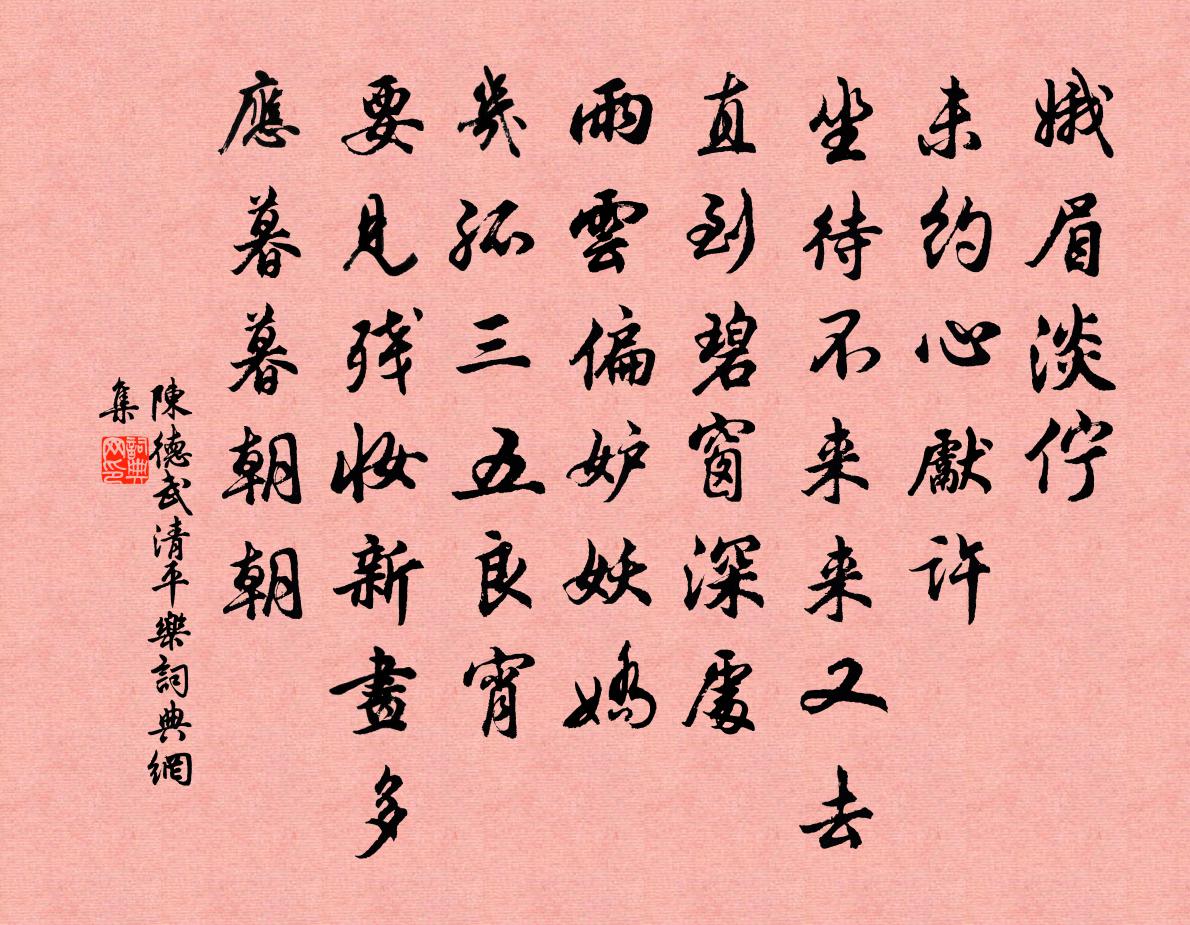 娥眉淡佇
未約心獻許
坐待不来来又去
直到碧窗深處
雨雲偏妒妖嬌
幾孤三五良宵
要見残妝新畫多
應暮暮朝朝
陳德武清平樂詞典網
集
詞典
网印